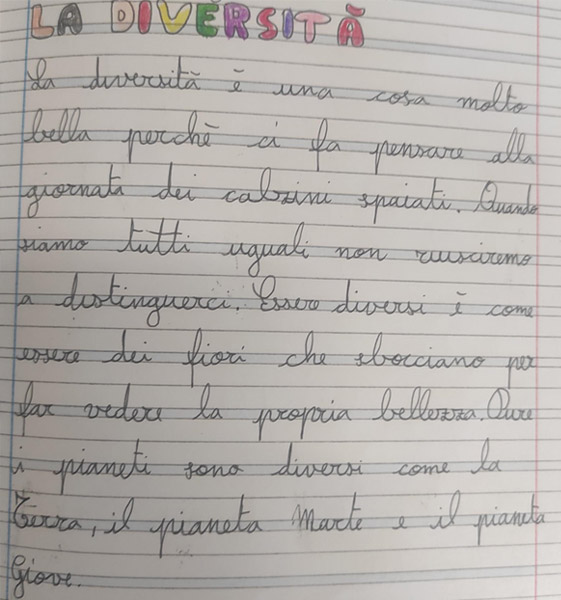 LA DIVERSITÀ
La diversità è una cosa molto
bella perchè ci fa pensare alla
giornata dei calzini spaiati. Quando
siamo tutti uguali non riusciremo
a distinguerci. Essere diversi è come
essere dei fiori che sbocciano per
far vedere la propria bellezza. Pure
i pianeti sono diversi come la
Terra, il pianeta Marte e il pianeta
Giove.